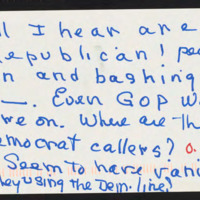 I hear are
Republican! pe
n and bashing
—. Even GOP w
re on. Where are th
emocrat callers? O.
Seem to have vani
ey using the Dem. line?